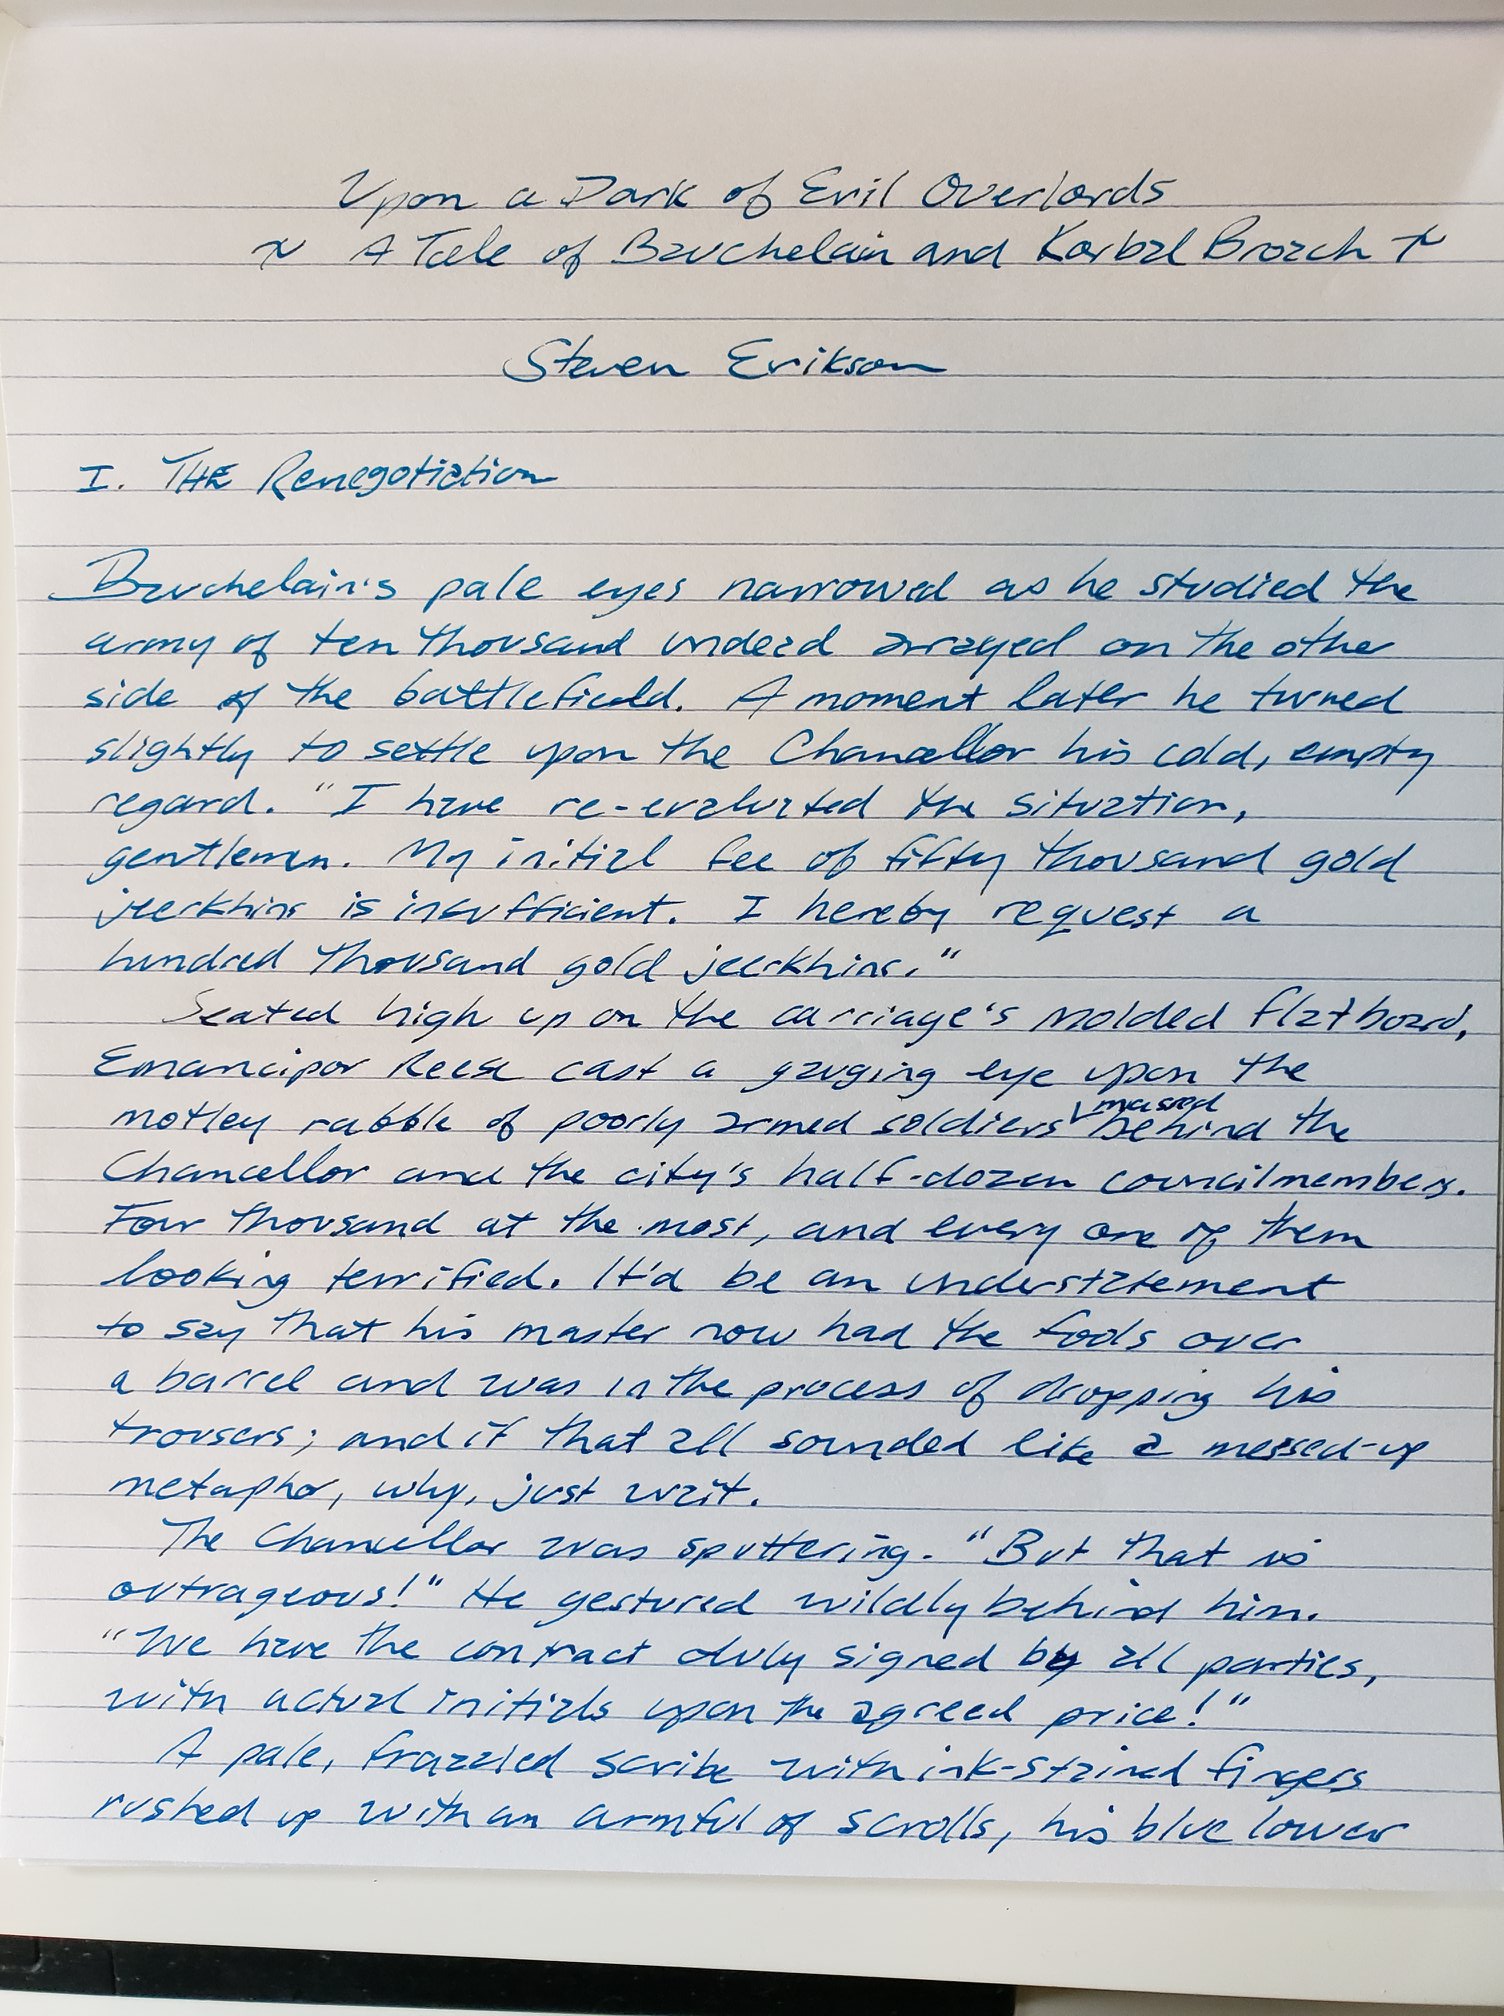 Upon a Dark of Evil Overlords
~ A Tale of Bauchelain and Korbal Broach ~
Steven Erikson
I. THE Renegotiation
Bauchelain's pale eyes narrowed as he studied the
army of ten thousand undead arrayed on the other
side of the battlefield. A moment later he turned
slightly to settle upon the Chancellor his cold, empty
regard. "I have re-evaluated the situation,
gentlemen. My initial fee of fifty thousand gold
jeerkhins is insufficient. I hereby request a
hundred thousand gold jeerkhins."
Seated high up on the carriage's molded flatboard,
Emancipor Reese cast a gauging eye upon the
motley rabble of poorly armed soldiers massed behind the
Chancellor and the city's half-dozen councilmembers.
Four thousand at the most, and every one of them
looking terrified. It'd be an understatement
to say that his master now had the fools over
a barrel and was in the process of dropping his
trousers; and if that all sounded like a messed-up
metaphor, why, just wait.
The Chancellor was sputtering. "But that is
outrageous!" He gestured wildly behind him.
"We have the contract duly signed by all parties,
with actual initials upon the agreed price!"
A pale, frazzled scribe with ink-stained fingers
rushed up with an armful of scrolls, his blue lower